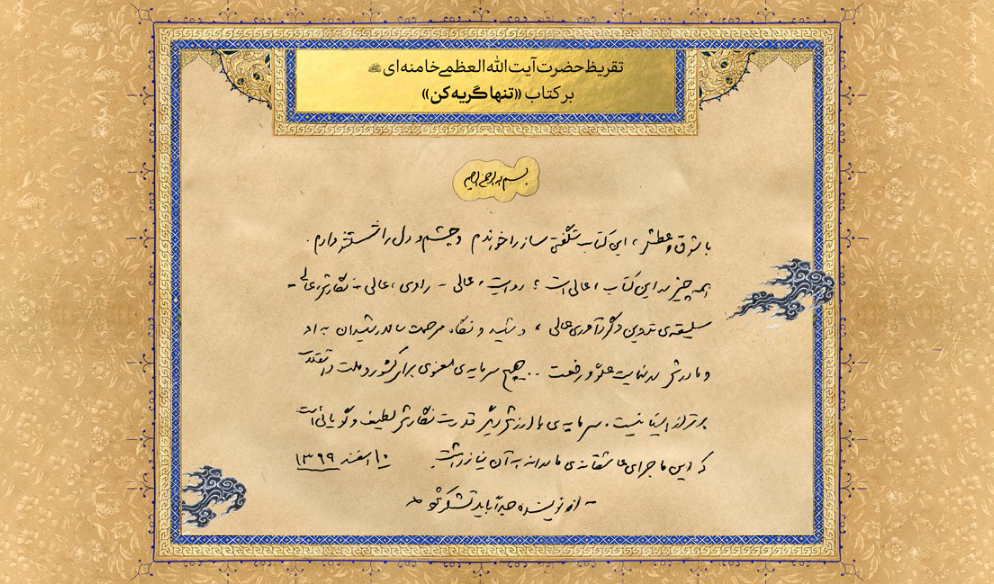 تقریظ حضرت آیت‌الله‌العظمی خامنه‌ای
بر کتاب «تنها گریه کن»
بسم الله الرحمن الرحیم
با شوق و عطش، این کتاب شگفتی‌ساز را خواندم و چشم و دل را شستشو دادم.
همه چیز در این کتاب، عالی است؛ روایت، عالی - راوی، عالی - نگارش، عالی -
سلیقه‌ی تدوین و گردآوری عالی، و شهید و نگاه مرحمت سالار شهیدان به او
و مادرش در نهایت علوّ و رفعت .. هیچ سرمایه‌ی معنوی برای کشور و ملت و انقلاب
برتر از اینها نیست. سرمایه‌ی باارزش دیگر قدرت نگارش لطیف و گویائی است
که این ماجرای عاشقانه‌ی مادرانه به آن نیاز داشت. ۱۰ اسفند ۱۳۹۹
- از نویسنده جداً باید تشکر شود -